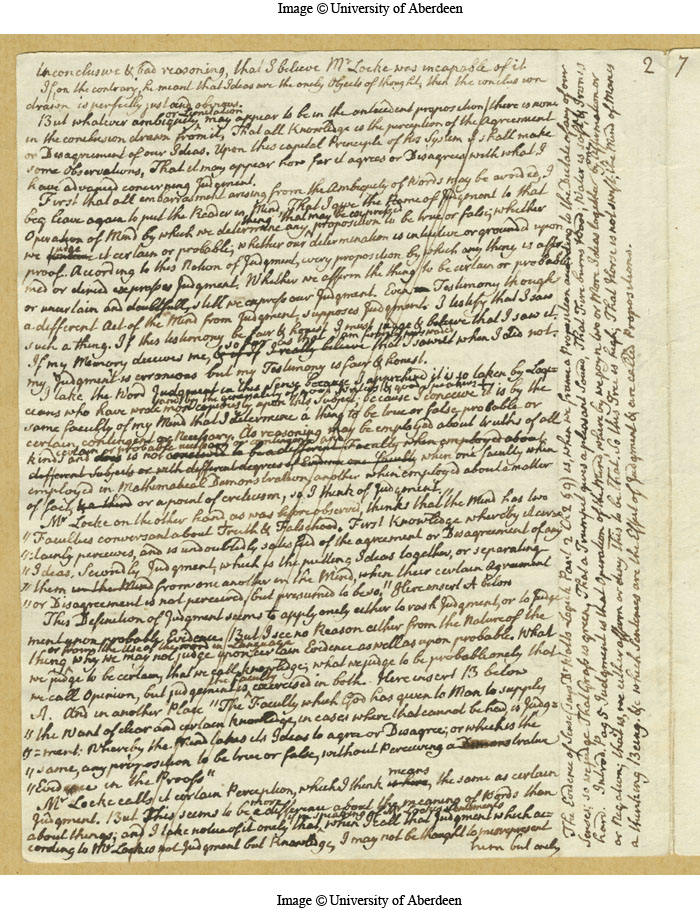 Image © University of Aberdeen
2
7
inconclusive & bad reasoning, that I believe Mr Locke was incapable of it
If on the contrary he meant that Ideas are the onely Objects of thought, then the conclusion
drawn is perfectly just and obvious.
But whatever ambiguity or Limitation may appear to be in the antecedent proposition, there is none
in the conclusion drawn from it, That all Knowledge is the perception of the Agreement
or Disagreement of our Ideas. Upon this capital Principle of his System I shall make
some Observations, That it may appear how far it agrees or Disagrees with what I
have advanced concerning Judgment.
First that all embarrassment arising from the Ambiguity of Words may be avoided, I
beg leave again to put the Reader in Mind, That I give the Name of Judgment to that
Operation of Mind by which we determine any thing that may be expressed proposition to be true or false; whether
we judge it certain or probable; whether our determination is intuitive or grounded upon
proof. According to this Notion of Judgment, every proposition by which any thing is affir
med or denied expresses Judgment, Whether we affirm the thing to be certain or probable
or uncertain and doubtfull, still we express our Judgment. Even Testimony though
a different Act of the Mind from Judgment, supposes Judgment. I testify that I saw
such a thing. If this testimony be fair & honest I must judge & believe that I saw it,
If my Memory deceives me, so far as that I am firmly perswaded I really believe that I saw it when I did not,
my Judgment is erroneous but my Testimony is fair & honest.
I take the Word Judgment in this sense because it is so taken by Logi=
cians who have wrote most copiously upon this Subject; because I conceive it is by the
same faculty of my Mind that I determine a thing to be true or false, probable or
certain, contingent or Necessary. As reasoning may be employed about truths of all
kinds certain or probable necessary or contingent and is not conceived to be a different Faculty when employed about
different Subjects or with different degrees of Evidence one Faculty when one faculty when
employed in Mathematical Demonstration, another when employed about a matter
of fact, & a third or a point of criticism, so I think of Judgment.
Mr Locke on the other hand, as was before observed, thinks that "the Mind has two
"Faculties conversant about Truth & Falsehood. First Knowledge whereby it cer=
"tainly perceives, and is undoubtedly satisfied of the agreement or Disagreement of any
"Ideas, Secondly Judgment, which is the putting Ideas together, or separating
"them in the Mind from one another in the Mind, when their certain Agreement
"or Disagreement is not perceived, but presumed to be so." Here insert A below
This Definition of Judgment seems to apply onely either to rash Judgment, or to Judg
ment upon probable Evidence. But I see no Reason either from the Nature of the
thing or from the Use of the word in Language why we may not judge upon certain Evidence as well as upon probable. What
we judge to be certain, that we call knowledge, what we judge to be probable onely that
we call Opinion, but judgement the faculty is exercised in both. Here insert B below
A. And in another Place "The Faculty which God has given to Man to supply
"the Want of clear and certain Knowledge, in cases where that cannot be had, is Judg=
"ment: Whereby the Mind takes its Ideas to agree or Disagree; or which is the
"same, any proposition to be true or false, without Perceiving a Demonstrative
"Evidence in the Proofs"
Mr Locke calls it certain Perception, which I think means the same as certain
Judgment. But This seems to be more a difference about the meaning of Words than
about things; and I take notice of it onely that in speaking of Mr Lockes sentiments when I call that Judgment which ac=
cording to Mr Locke is not Judgment but Knowledge, I may not be thought to misrepresent
him but onely
The Evidence of Sense (says Dr Watts Logick Part 2 Ch 2 §9) is, when we frame a Proposition according to the Dictate of any of our
Senses; so we judge That Grass is green, That a Trumpet gives a pleasant Sound, That Fire burns Wood, Water is soft & Iron is
hard. Introd. Pag 5 Judgment is that Operation of the Mind, whereby we joyn two or More Ideas together by Affirmation or
or Negation, that is, we either affirm or deny This to be That. So this Tree is high; That Horse is not swift; the Mind of Man is
a thinking Being. &c which Sentences are the Effect of Judgment & are called Propositions.
Image © University of Aberdeen